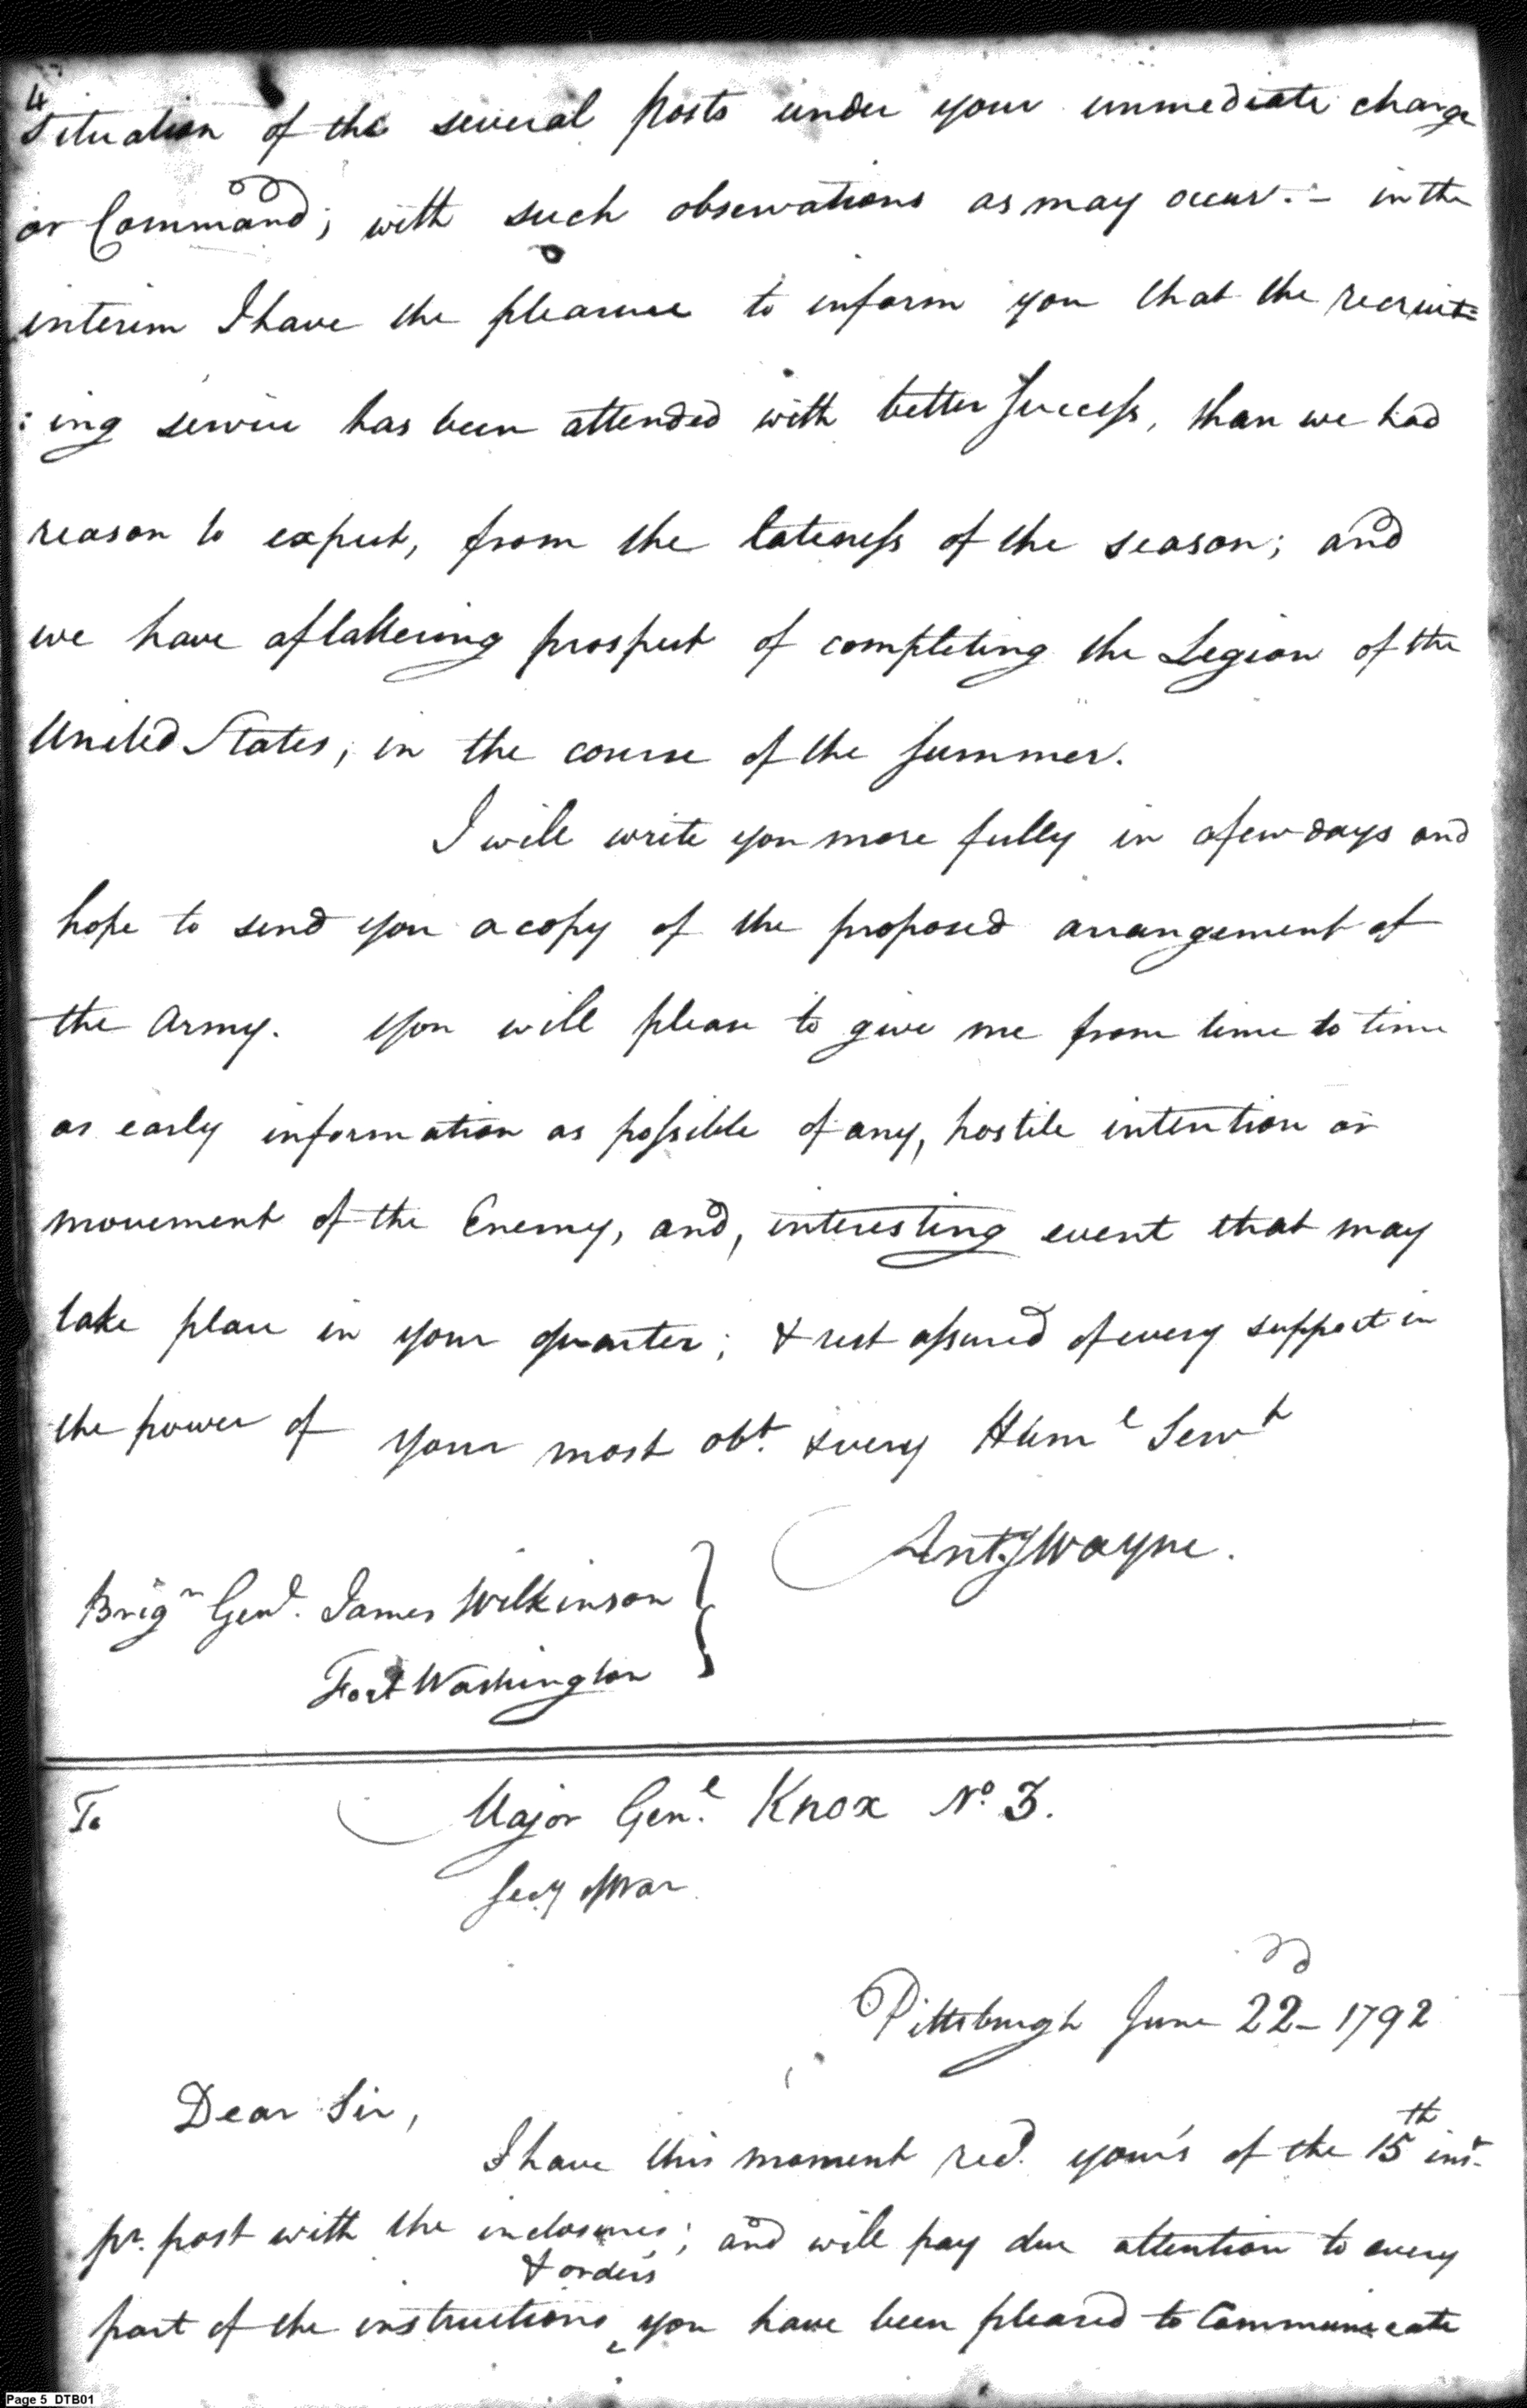 4
situation of the several posts under your immediate charge
or Command; with such observations as may occur. – in the
interim I have the pleasure to inform you that the recruit=
:ing service has been attended with better success, than we had
reason to expect, from the lateness of the season; and
we have a flattering prospect of completing the Legion of the
United States, in the course of the summer.
I will write you more fully in a few days and
hope to send you a copy of the proposed arrangement of
the Army. you will please to give me from time to time
as early information as possible of any, hostile intention or
movement of the Enemy, and, interesting event that may
take place in your quarter; & rest assured of every support in
the power of your most obt. & very Huml Servt
Anty Wayne.
Brigr Genl. James Wilkinson
Fort Washington
To Major Genl. Knox No. 3.
Secy of War
Pittsburgh June 22d 1792
Dear Sir,
I have this moment recd. your's of the 15th inst.
pr. post with the inclosures; and will pay due attention to every
& orders
part of the instructions ‸ you have been pleased to Communicate
Page 5 DTB01